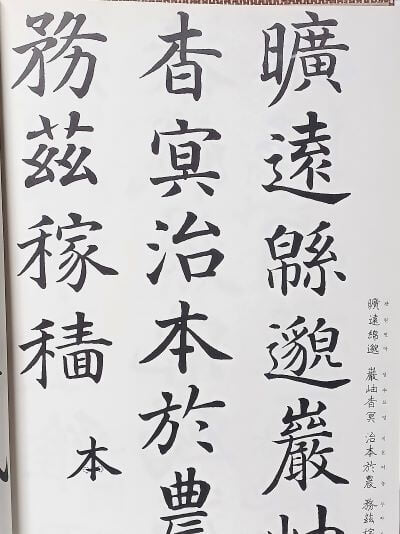 曠遠緜邈巖岫
杳冥治本於農
務茲稼穡
本
曠遠綿邈 巖岫杳冥 治本於農 務茲稼